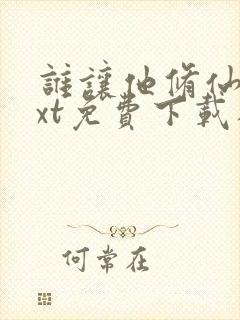 誰讓他脩仙
xt免費下載
何常在